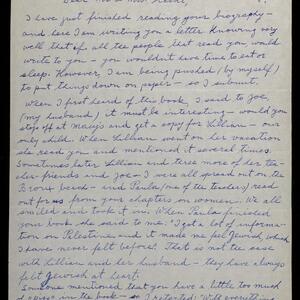 Dear Mr & Mrs.
I have just finished reading your biography -
and here I am writing you a letter knowing very
well that if all the people that read you would
write to you - you wouldn't have time to eat or
sleep. However, I am being pushed (by myself)
to put things down on paper - so I submit.
When I first heard of this book, I said to Joe
(my husband), it must be interesting - would you
stop off at Macy's and get a copy for Lillian - our
only child. When Lillian was out on her vacation
she read you and mentioned it several times.
Sometime later Lillian and three more of her tea-
cher-friends and Joe - I were all spread out on the
Bronx beach - and Paula (one of the teachers) read
out for us from your chapters on women. We all
smiled and took it in. When Paula finished
your book she said to me: "I got a lot of informa-
tion on Palestine and it made me feel Jewish, which
I have never felt before". That is not the case
with Lillian and her husband - they have always
felt Jewish at heart.
Someone mentioned that you have a little too much
of in the book - so I retorted: Will